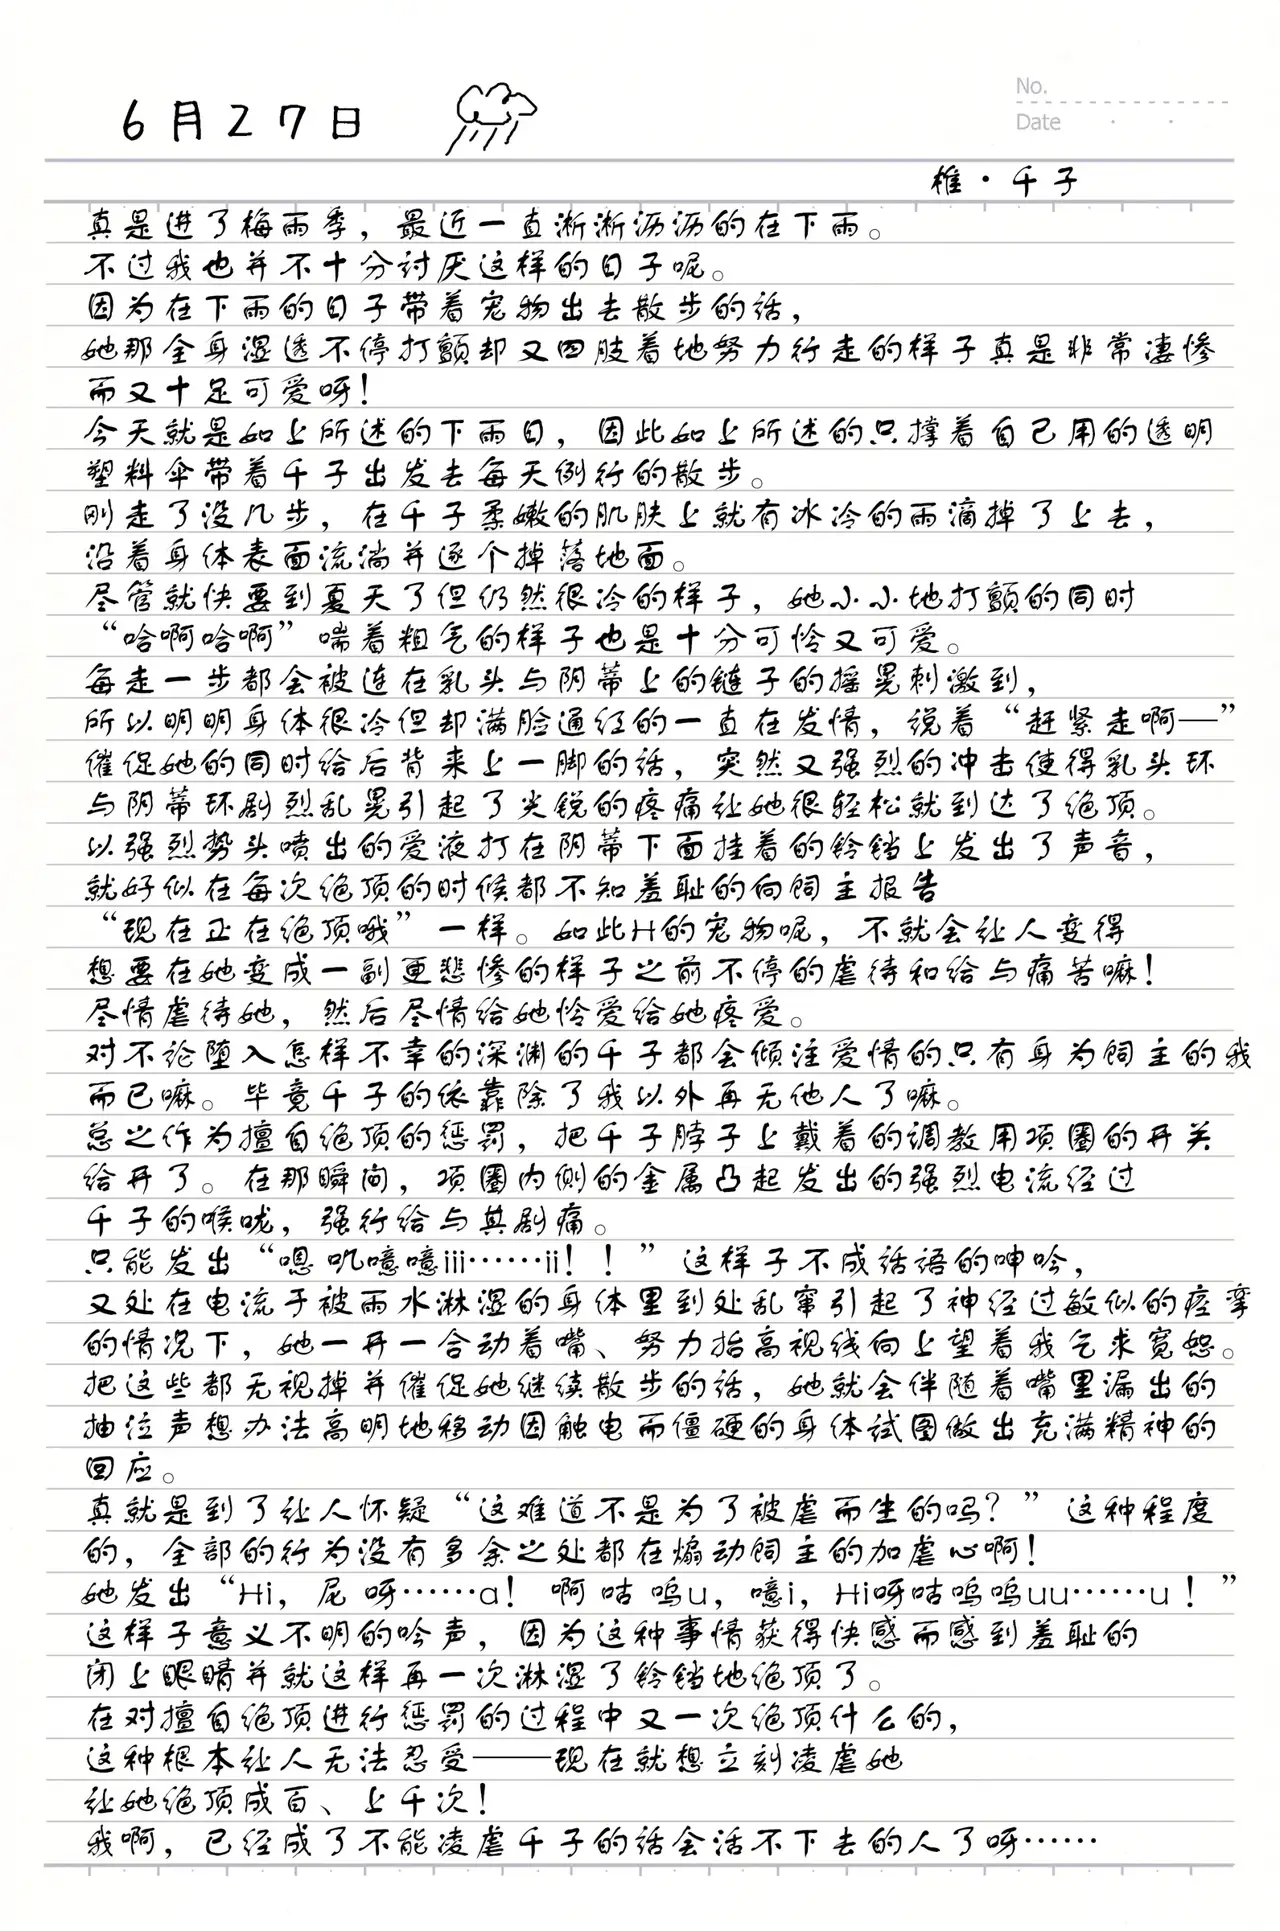 No.
6月27日
Date
椎·千子
真是进了梅雨季，最近一直淅淅沥沥的在下雨。
不过我也并不十分讨厌这样的日子呢。
因为在下雨的日子带着宠物出去散步的话，
她那全身湿透不停打颤却又四肢着地努力行走的样子真是非常凄惨
而又十足可爱呀！
今天就是如上所述的下雨日，因此如上所述的只撑着自己用的透明
塑料伞带着千子出发去每天例行的散步。
刚走了没几步，在千子柔嫩的肌肤上就有冰冷的雨滴掉了上去，
沿着身体表面流淌并逐个掉落地面。
尽管就快要到夏天了但仍然很冷的样子，她小小地打颤的同时
“哈啊哈啊”喘着粗气的样子也是十分可怜又可爱。
每走一步都会被连在乳头与阴蒂上的链子的摇晃刺激到，
所以明明身体很冷但却满脸通红的一直在发情，说着“赶紧走啊——”
催促她的同时给后背来上一脚的话，突然又强烈的冲击使得乳头环
与阴蒂环剧烈乱晃引起了尖锐的疼痛让她很轻松就到达了绝顶。
以强烈势头喷出的爱液打在阴蒂下面挂着的铃铛上发出了声音，
就好似在每次绝顶的时候都不知羞耻的向饲主报告
“现在正在绝顶哦”一样。如此H的宠物呢，不就会让人变得
想要在她变成一副更悲惨的样子之前不停的虐待和给与痛苦嘛！
尽情虐待她，然后尽情给她怜爱给她疼爱。
对不论堕入怎样不幸的深渊的千子都会倾注爱情的只有身为饲主的我
而已嘛。毕竟千子的依靠除了我以外再无他人了嘛。
总之作为擅自绝顶的惩罚，把千子脖子上戴着的调教用项圈的开关
给开了。在那瞬间，项圈内侧的金属凸起发出的强烈电流经过
千子的喉咙，强行给与其剧痛。
只能发出“嗯叽噫噫iii……ii！！”这样子不成话语的呻吟，
又处在电流于被雨水淋湿的身体里到处乱窜引起了神经过敏似的痉挛
的情况下，她一开一合动着嘴、努力抬高视线向上望着我乞求宽恕。
把这些都无视掉并催促她继续散步的话，她就会伴随着嘴里漏出的
抽泣声想办法高明地移动因触电而僵硬的身体试图做出充满精神的
回应。
真就是到了让人怀疑“这难道不是为了被虐而生的吗？”这种程度
的，全部的行为没有多余之处都在煽动饲主的加虐心啊！
她发出“Hi，尼呀……a！啊咕呜u，噫i，Hi呀咕呜呜uu……u！”
这样子意义不明的吟声，因为这种事情获得快感而感到羞耻的
闭上眼睛并就这样再一次淋湿了铃铛地绝顶了。
在对擅自绝顶进行惩罚的过程中又一次绝顶什么的，
这种根本让人无法忍受——现在就想立刻凌虐她
让她绝顶成百、上千次！
我啊，已经成了不能凌虐千子的话会活不下去的人了呀……